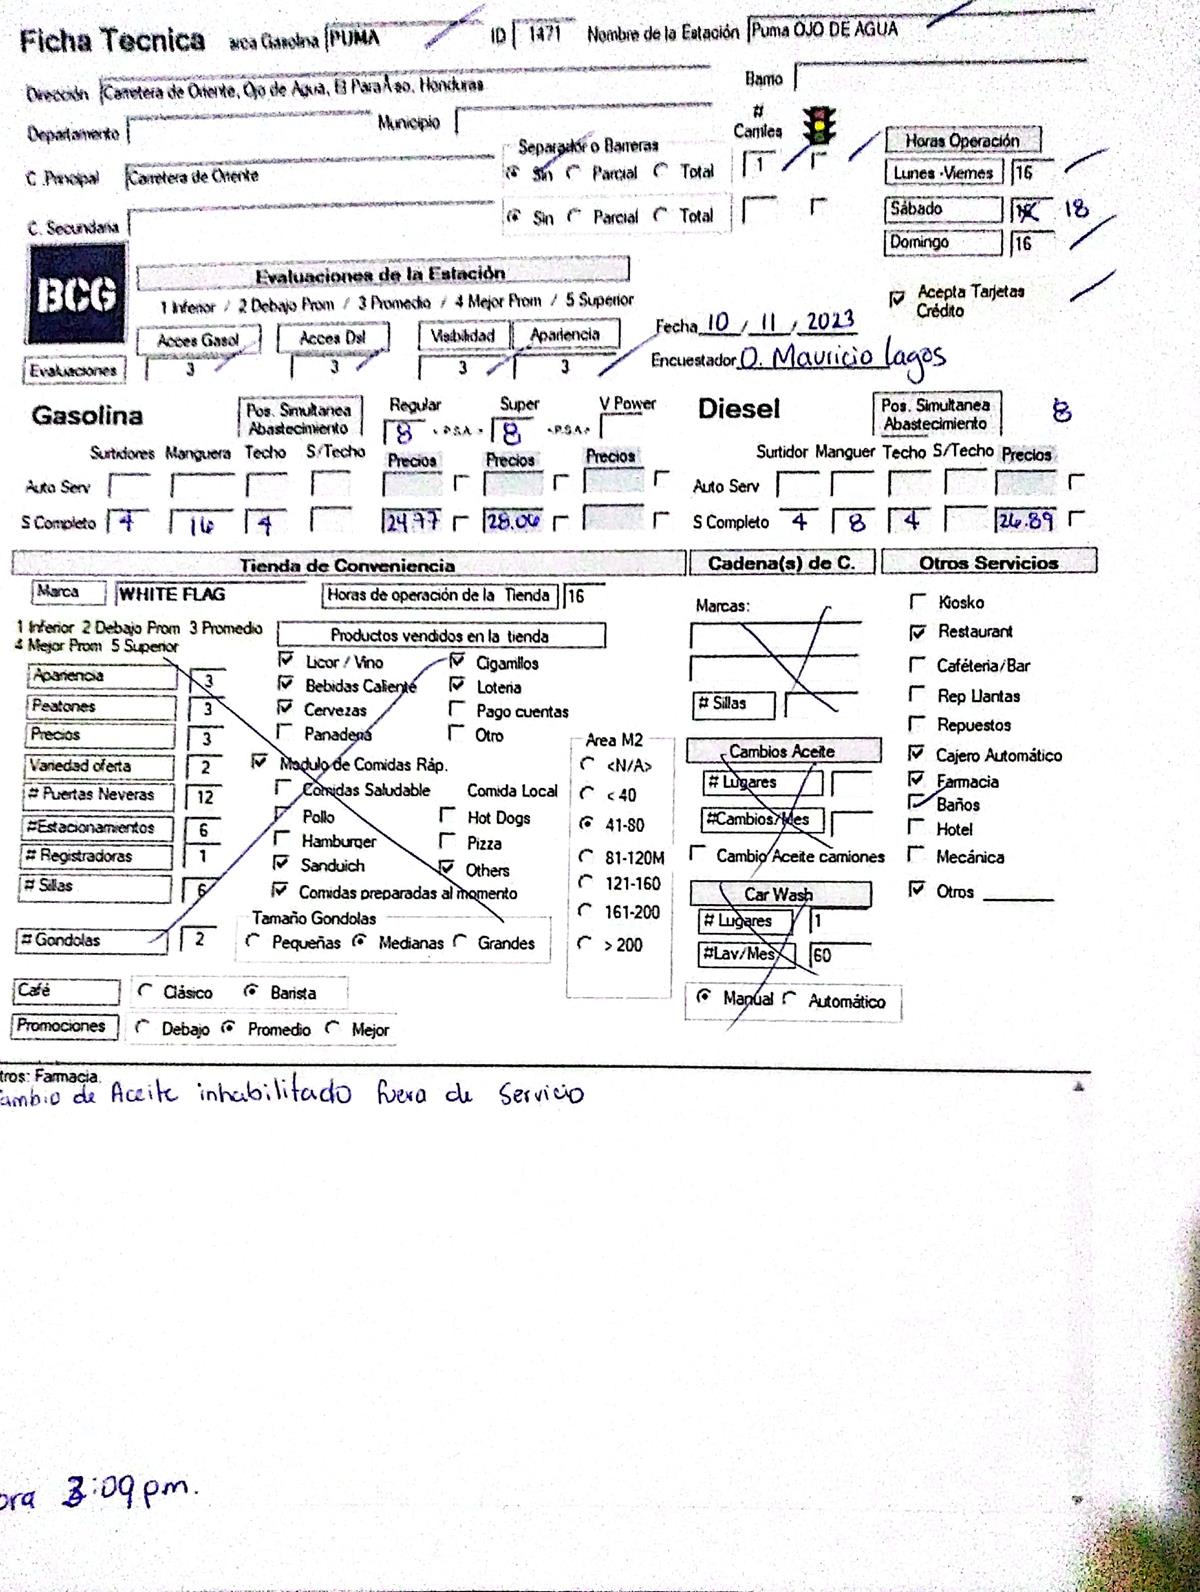 Ficha Tecnica arca Gasolina PUMA ID 1471 Nombre de la Estación Puma OJO DE AGUA
Dirección Carretera de Oriente, Ojo de Agua, El Paraíso, Honduras Barrio
Departamento Municipio # Carriles
C .Principal Carretera de Oriente Separador o Barreras Sin Parcial Total 1
C. Secundaria Sin Parcial Total
Horas Operación
Lunes -Viernes 16
Sábado 18
Domingo 16
Acepta Tarjetas Crédito
BCG
Evaluaciones de la Estación
1 Inferior / 2 Debajo Prom / 3 Promedio / 4 Mejor Prom / 5 Superior
Acces Gasol Acces Dsl Visibilidad Apariencia
Evaluaciones 3 3 3 3
Fecha 10 / 11 / 2023
Encuestador O. Mauricio Lagos
Gasolina Pos. Simultanea Abastecimiento Regular 8 <P.S.A.> Super 8 <P.S.A.> V Power
Surtidores Manguera Techo S/Techo Precios Precios Precios
Auto Serv
S Completo 4 16 4 24.77 28.06
Diesel Pos. Simultanea Abastecimiento 8
Surtidor Manguer Techo S/Techo Precios
Auto Serv
S Completo 4 8 4 26.89
Tienda de Conveniencia
Marca WHITE FLAG Horas de operación de la Tienda 16
1 Inferior 2 Debajo Prom 3 Promedio
4 Mejor Prom 5 Superior
Apariencia 3
Peatones 3
Precios 3
Variedad oferta 2
# Puertas Neveras 12
#Estacionamientos 6
# Registradoras 1
# Sillas 6
# Gondolas 2
Productos vendidos en la tienda
Licor / Vino Cigarrillos
Bebidas Caliente Loteria
Cervezas Pago cuentas
Panaderia Otro
Modulo de Comidas Ráp.
Comidas Saludable Comida Local
Pollo Hot Dogs
Hamburger Pizza
Sanduich Others
Comidas preparadas al momento
Tamaño Gondolas
Pequeñas Medianas Grandes
Area M2
<N/A>
< 40
41-80
81-120M
121-160
161-200
> 200
Café Clásico Barista
Promociones Debajo Promedio Mejor
Cadena(s) de C.
Marcas:
# Sillas
Cambios Aceite
# Lugares
#Cambios/Mes
Cambio Aceite camiones
Car Wash
# Lugares 1
#Lav/Mes 60
Manual Automático
Otros Servicios
Kiosko
Restaurant
Caféteria/Bar
Rep Llantas
Repuestos
Cajero Automático
Farmacia
Baños
Hotel
Mecánica
Otros
tros: Farmacia.
ambio de Aceite inhabilitado fuera de Servicio
ora 3:09 pm.